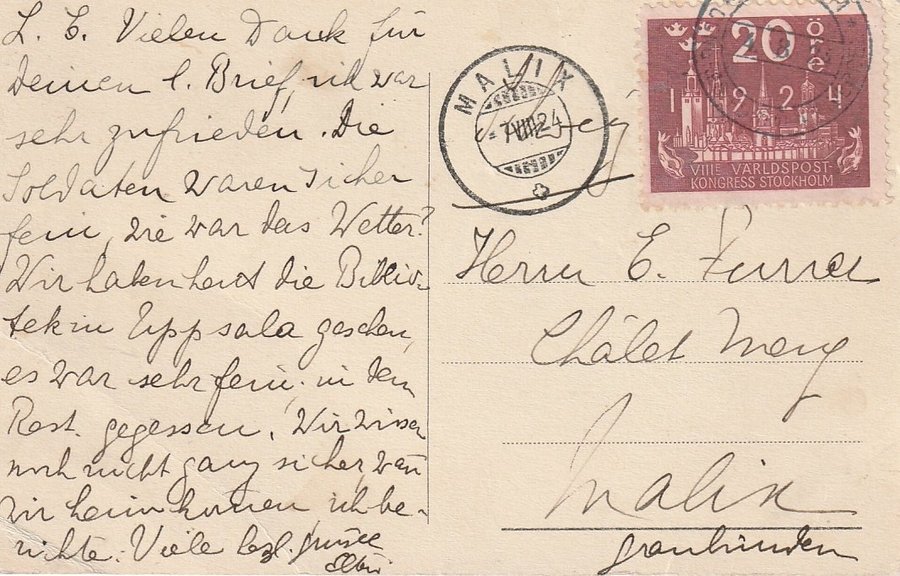 L. E. Vielen Dank für
Deinen l. Brief, ich war
sehr zufrieden. Die
Soldaten waren sicher
fein, wie war das Wetter?
Wir haben heut die Biblio-
tek in Uppsala gesehen,
es war sehr fein, in dem
Rest. gegessen. Wir wissen
noch nicht ganz sicher, wan
wir heimkommen ich be-
richte. Viele hzl. Grüsse
MALIX
-7.VIII.24
20 öre
1924
VIIIE VÄRLDSPOST
KONGRESS STOCKHOLM
Herrn E. Furrer
Châlet
Malix
Graubünden